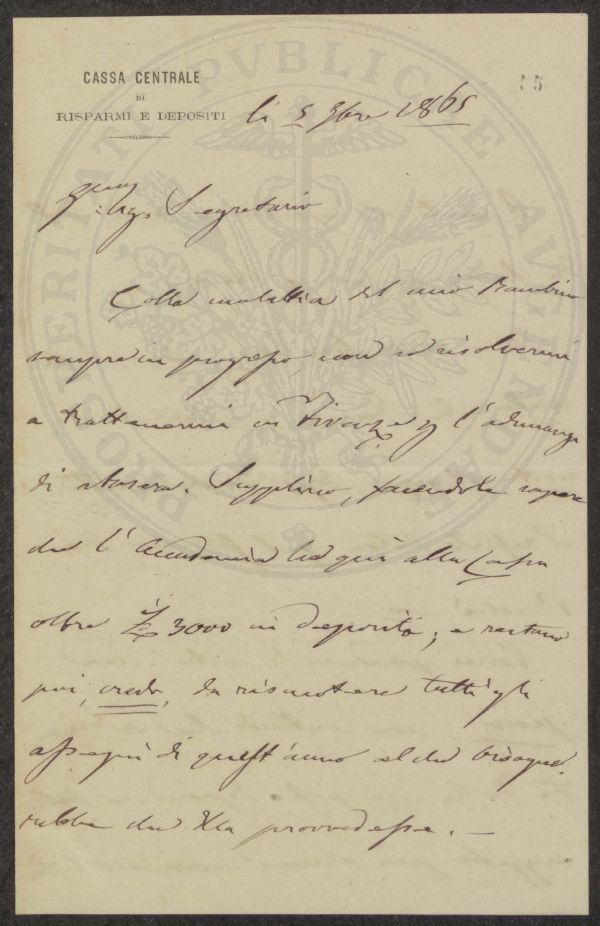 PROSPERITATI PVBLICAE AVGENDAE
CASSA CENTRALE
DI
RISPARMI E DEPOSITI
55
li 5 9bre 1865
Sig. Segretario
Colla malattia del mio Bambino
sempre in progresso, non so risolvermi
a trattenermi in Firenze p l'adunanza
di stasera. Supplisco, facendole sapere
che l'Accademia ha quì alla Cassa
oltre £ 3000 in deposito; e restano
poi, credo, da riscuotere tutti gli
assegni di quest'anno al che bisogne-
rebbe che Ella provvedesse. —